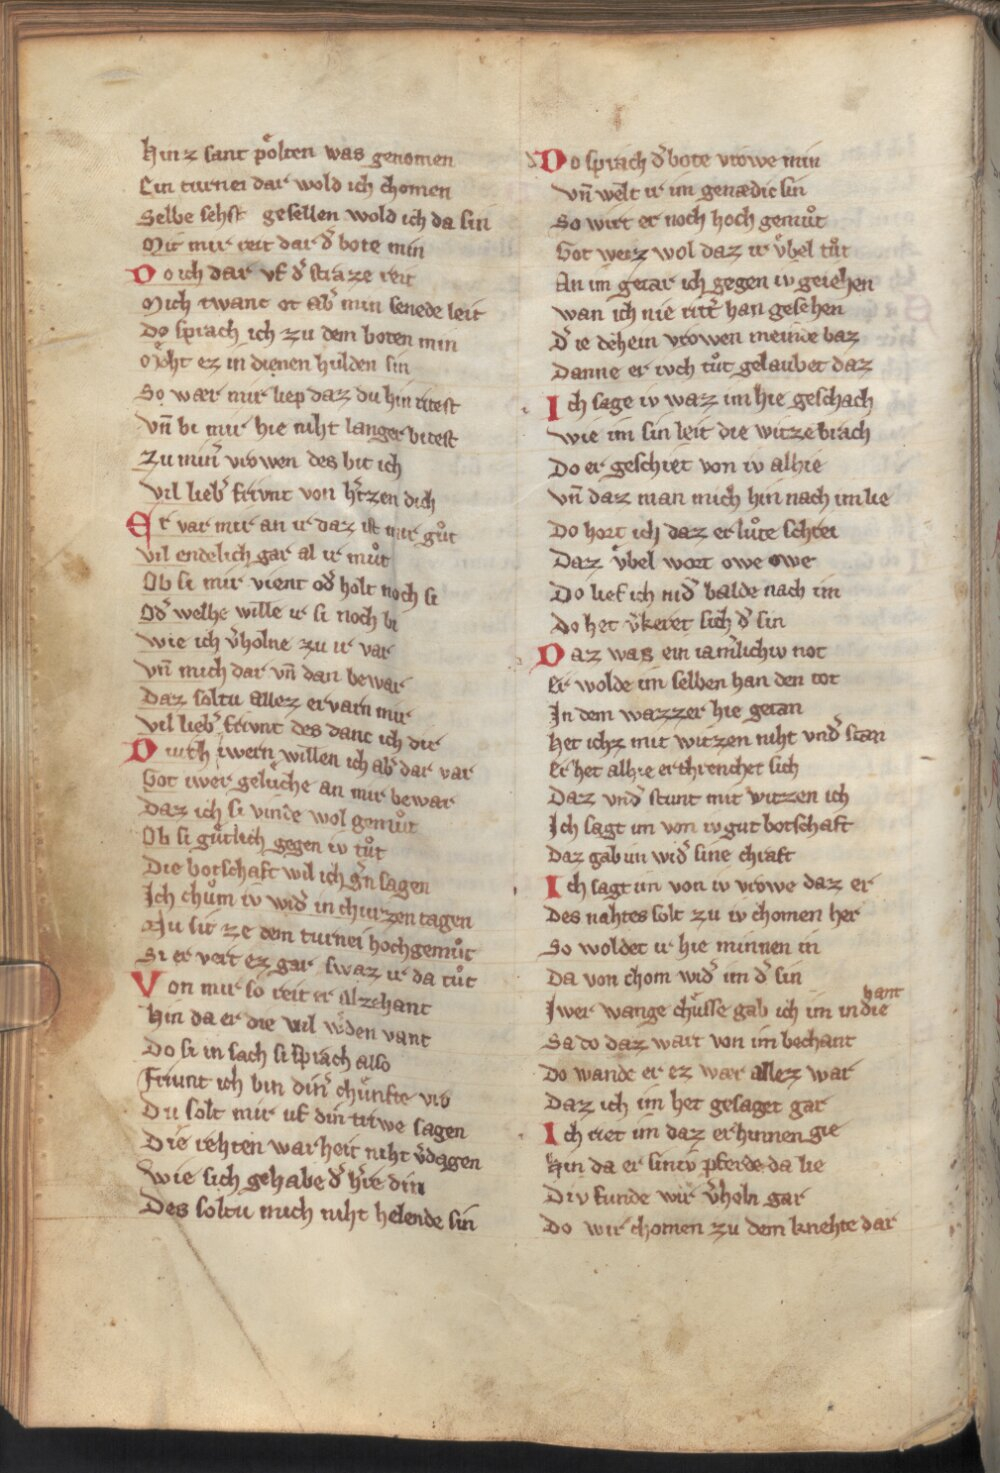 Hinz sant poͤlten was genomen
Ein turnei dar wold ich chomen
Selbe sehst gesellen wold ich da sin
Mit mir reit dar d͛ bote min
Do ich dar vf d͛ straze reit
Mich twanc ot ab͛ min senede leit
Do sprach ich zu dem boten min
Moͤht ez in dienen hulden sin
So wær mir liep daz du hin ritest
Vn̄ bi mir hie niht langer bitest
Zu min͛ vrowen des bit ich
Vil lieb͛ frivnt von h͛tzen dich
Er var mir an ir daz ist mir guͦt
Vil endelich gar al ir muͦt
Ob si mir vient od͛ holt noch si
Od͛ welhe wille ir si noch bi
Wie ich v͛holne zu ir var
Vn̄ mich dar vn̄ dan bewar
Daz soltu allez ervarn mir
Vil lieb͛ frivnt des danc ich dir
Durch iwern willen ich ab͛ dar var
Got iwer geluͤche an mir bewar
Daz ich si vinde wol gemuͦt
Ob si guͤtlich gegen iv tuͦt
Die botschaft wil ich g͛n sagen
Ich chuͦm iv wid͛ in churzen tagen
Nu sit ze dem turnei hochgemuͦt
Si er vert ez gar swaz ir da tuͦt
Von mir so reit er alzehant
Hin da er die vil w͛den vant
Do si in sach si sprach also
Friunt ich bin din͛ chuͤnfte vro
Du solt mir uf din triwe sagen
Die rehten warheit niht v͛dagen
Wie sich gehabe d͛ h͛re din
Des soltu mich niht helende sin
Do sprach d͛ bote vrowe min
Vn̄ welt ir im genædic sin
So wirt er noch hoch gemuͦt
Got weiz wol daz ir vͤbel tuͦt
An im getar ich gegen iv geiehen
Wan ich nie ritt͛ han gesehen
D͛ ie dehein vrowen meinde baz
Danne er ivch tuͦt gelaubet daz
Ich sage iv waz im hie geschach
Wie im sin leit die witze brach
Do er geschiet von iv alhie
Vn̄ daz man mich hin nach im lie
Do hort ich daz er luͦte schrei
Daz vͤbel wort owe owe
Do lief ich nid͛ balde nach im
Do het v͛keret sich d͛ sin
Daz was ein iam͛lichiv not
Er wolde im selben han den tot
In dem wazzer hie getan
Het ichz mit witzen niht vnd͛ stan
Er het alhie erthrenchet sich
Daz vnd͛ stunt mit witzen ich
Ich sagt im von iv gut botschaft
Daz gab im wid͛ sine chraft
Ich sagt im von iv vrowe daz er
Des nahtes solt zu iv chomen her
So woldet ir hie minnen in
Da von chom wid͛ im d͛ sin
Iwer wange chuͤsse gab ich im in die hant
Sa do daz wart von im bechant
Do wande er ez wær allez war
Daz ich im het gesaget gar
Ich riet im daz er hinnen gie
Hin da er siniv pferde da lie
Div funde wir v͛heln gar
Do wir chomen zu dem knehte dar